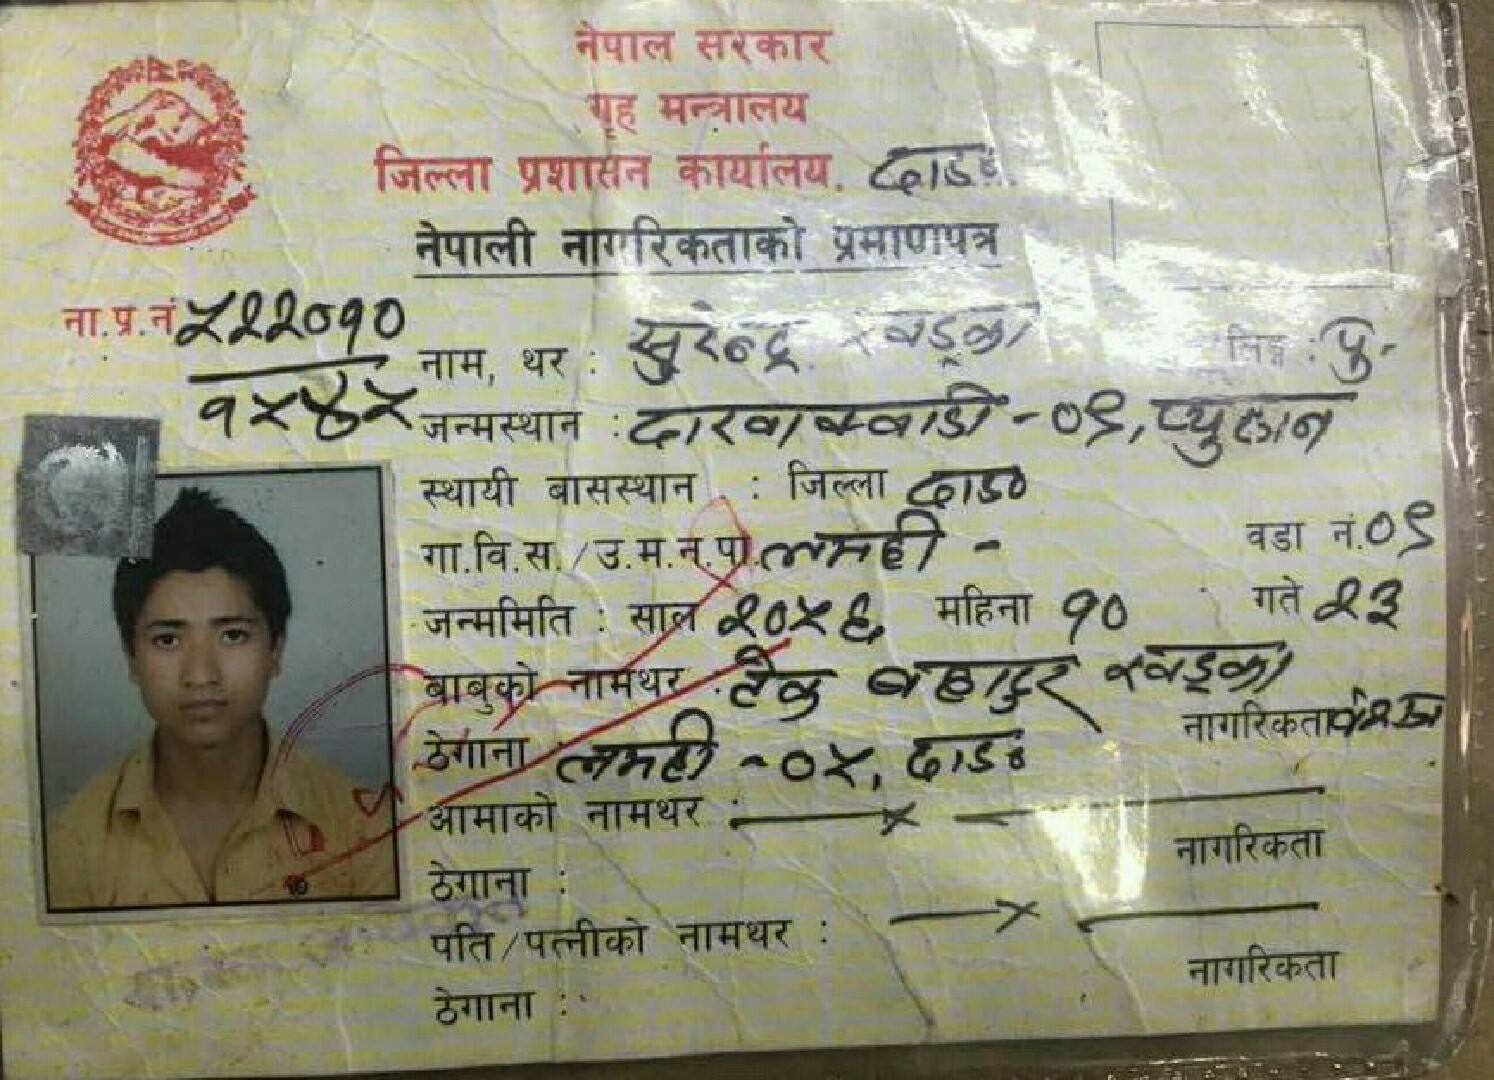 नेपाल सरकार
गृह मन्त्रालय
जिल्ला प्रशासन कार्यालय, दाङ
नेपाली नागरिकताको प्रमाणपत्र
ना.प्र.नं ५२२०१०
१५४५
नाम, थर : सुरेन्द्र खड्का लिङ्ग : पु.
जन्मस्थान : दाखाक्वाडी - ०९, प्युठान
स्थायी बासस्थान : जिल्ला दाङ
गा.वि.स./उ.म.न.पा. लमही - वडा नं. ०९
जन्ममिति : साल २०५६ महिना १० गते २३
बाबुको नामथर : टेक बहादुर खड्का
ठेगाना : लमही - ०५, दाङ नागरिकता वंशज
आमाको नामथर :
ठेगाना : नागरिकता
पति/पत्नीको नामथर :
ठेगाना : नागरिकता